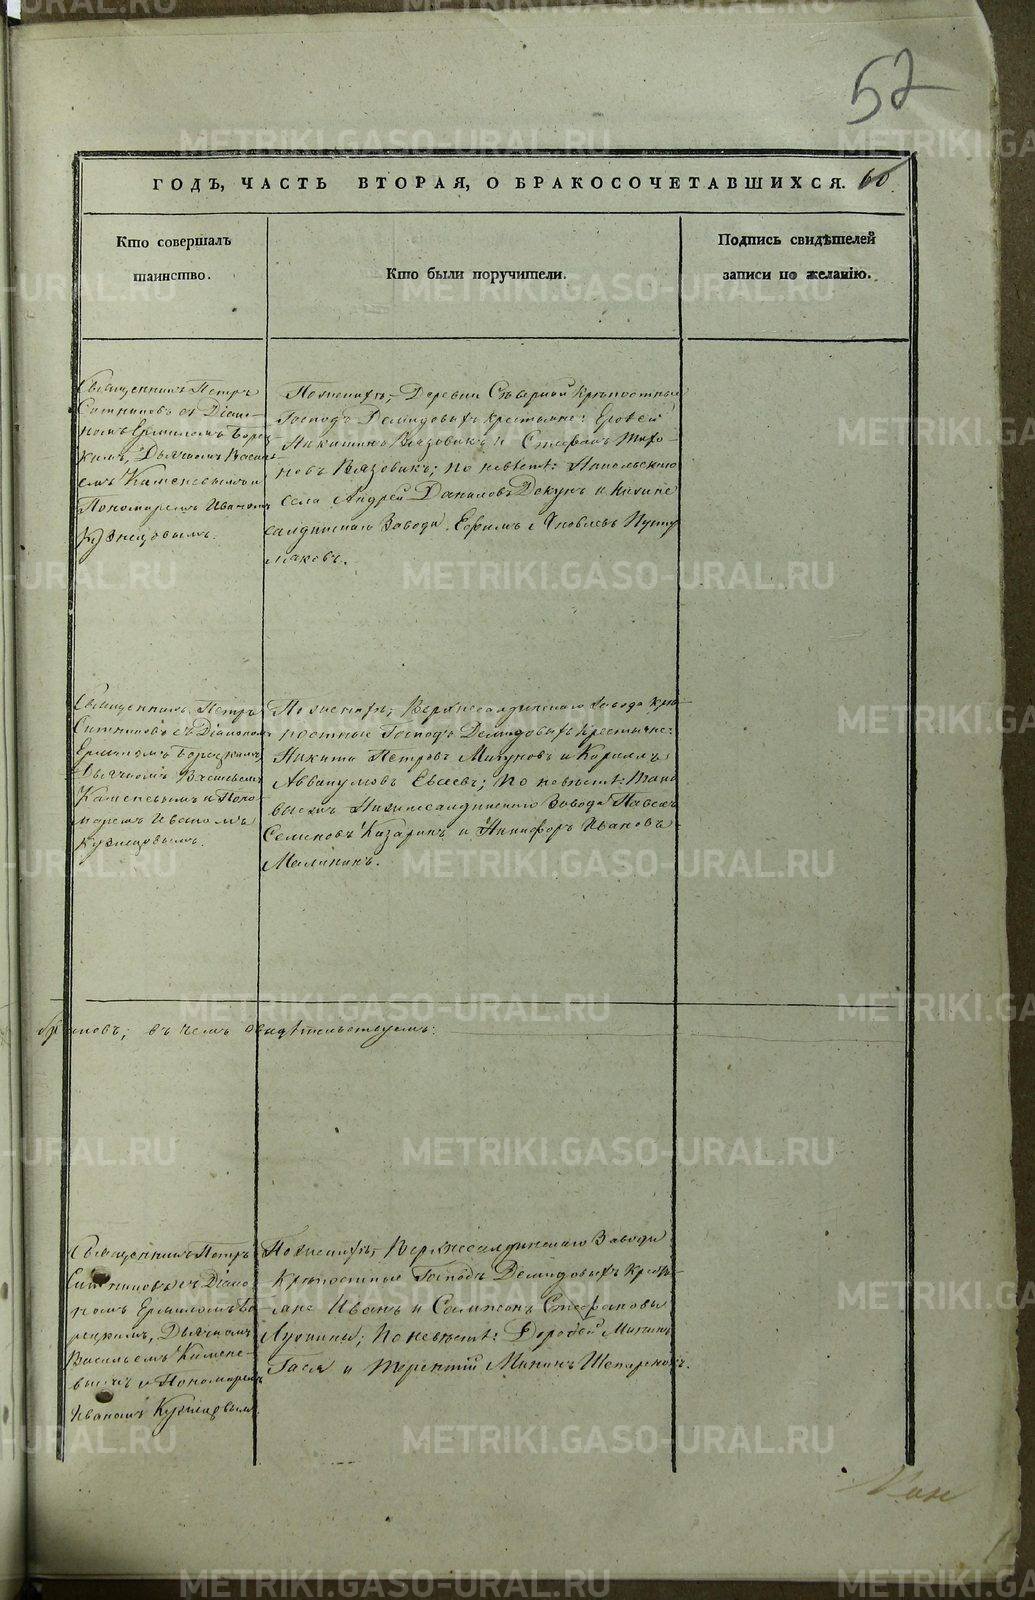 52
ГОДЪ, ЧАСТЬ ВТОРАЯ, О БРАКОСОЧЕТАВШИХСЯ. 60
Кто совершалъ
таинство.
Кто были поручители.
Подпись свидѣтелей
записи по желанію.
Священникъ Петръ
Ситниковъ съ Діако-
номъ Ермиломъ Борец-
кимъ, Дьячкомъ Василь-
емъ Каменевымъ и
Пономаремъ Иваномъ
Кузнецовымъ.
По женихѣ, Деревни Сѣверной Крѣпостные
Господъ Демидовыхъ крестьяне: Ерофей
Никитинъ Вязовикъ и Стефанъ Тихо-
новъ Вязовикъ; по невѣстѣ: Никольскаго
села Андрей Даниловъ Докунъ и Нижне
салдинскаго Завода Ефимъ Яковлевъ
Священникъ Петръ
Ситниковъ съ Діакономъ
Ермиломъ Борецкимъ,
Дьячкомъ Васильемъ
Каменевымъ и Поно-
маремъ Иваномъ
Кузнецовымъ.
По женихѣ, Верхнесалдинскаго Завода Крѣ-
постные Господъ Демидовыхъ Крестьяне:
Никита Петровъ Мигуновъ и Кирилъ
Аввакумовъ Евсеевъ; по невѣстѣ: тако
выежъ Нижнесалдинскаго Завода Павелъ
Семеновъ Казаринъ и Никифоръ Ивановъ
Малининъ.
въ чемъ свидѣтельствуемъ:
Священникъ Петръ
Ситниковъ съ Діако-
номъ Ермиломъ Бо-
рецкимъ, Дьячкомъ
Васильемъ Камене-
вымъ и Пономаремъ
Иваномъ Кузнецовымъ.
По женихѣ, Верхнесалдинскаго Завода
Крѣпостные Господъ Демидовыхъ Кресть-
яне Иванъ и Самсонъ Стефановы
по невѣстѣ: Дорофей Микинъ
и Терентій Микинъ
METRIKI.GASO-URAL.RU